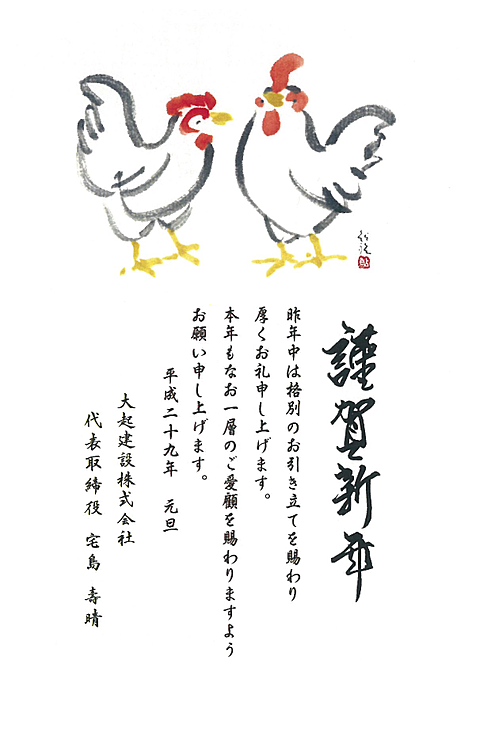 謹賀新年
昨年中は格別のお引き立てを賜わり
厚くお礼申し上げます。
本年もなお一層のご愛顧を賜わりますよう
お願い申し上げます。
平成二十九年　元旦
大起建設株式会社
代表取締役　宅島　壽晴